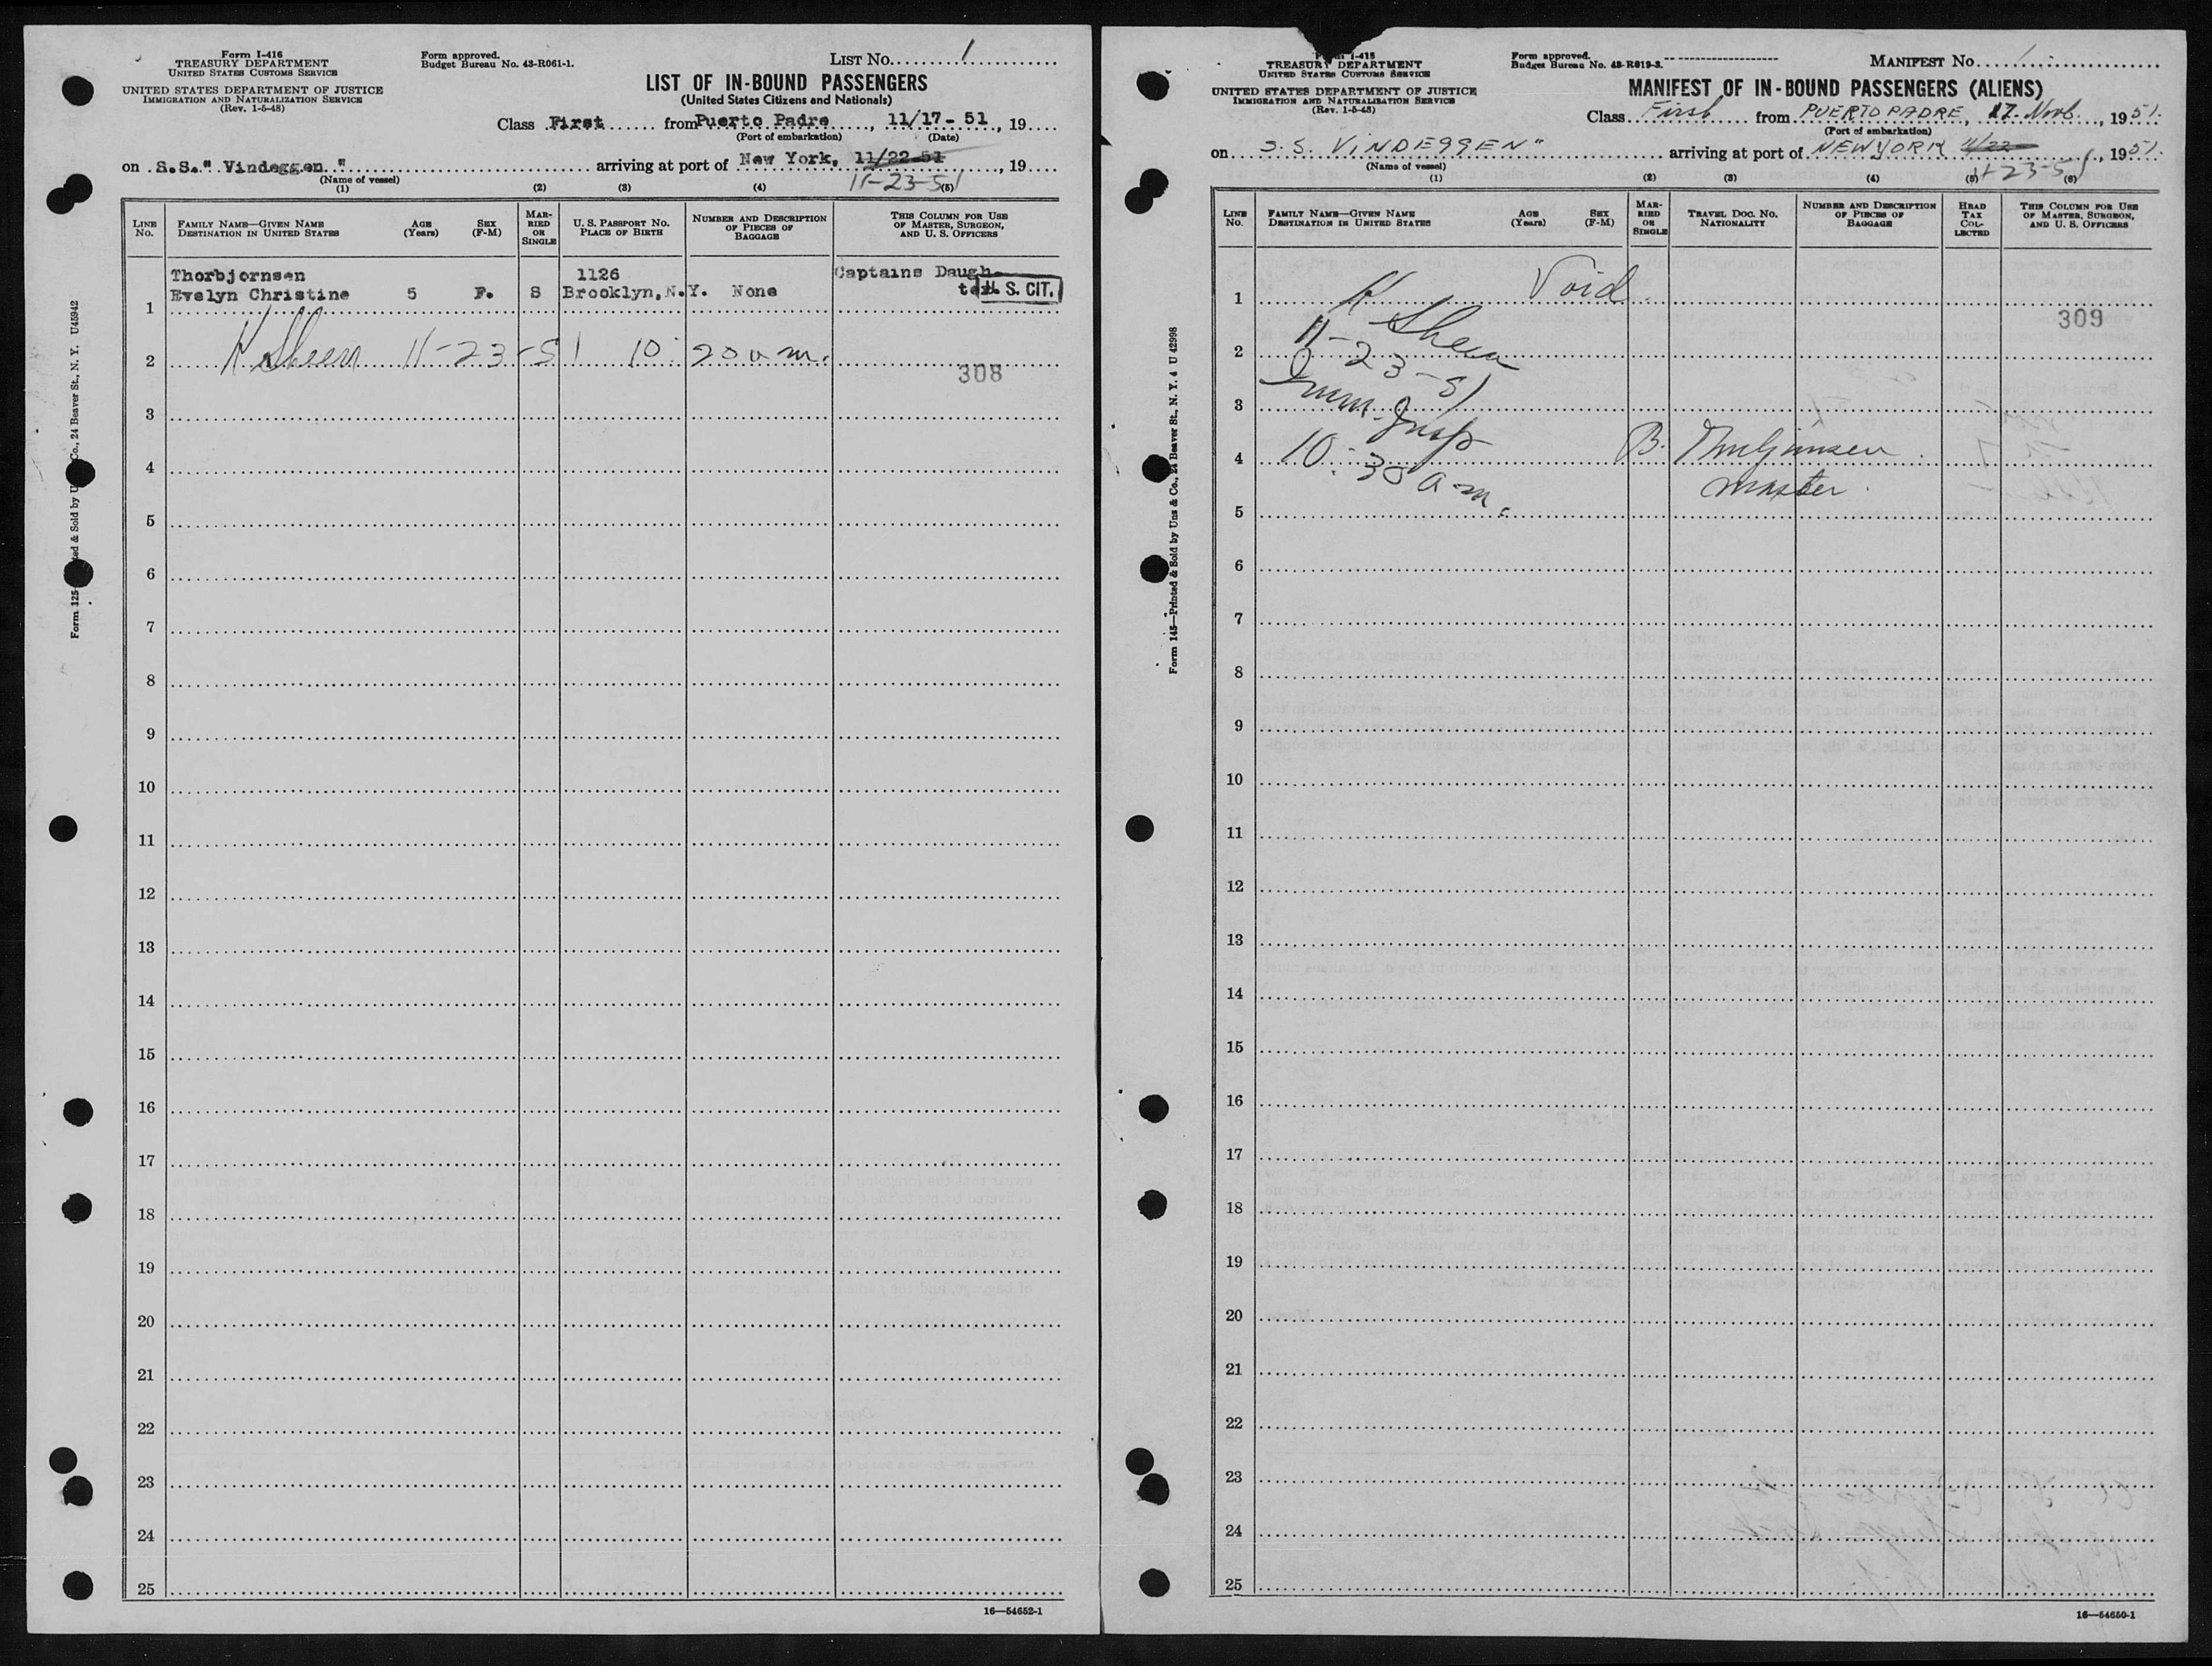 Form I-416
TREASURY DEPARTMENT
UNITED STATES CUSTOMS SERVICE
UNITED STATES DEPARTMENT OF JUSTICE
IMMIGRATION AND NATURALIZATION SERVICE
(Rev. 1-5-48)
Form approved.
Budget Bureau No. 43-R061-1.
LIST No. 1
LIST OF IN-BOUND PASSENGERS
(United States Citizens and Nationals)
Class First from Puerto Padre, 11/17-51, 19
(Port of embarkation) (Date)
on S.S." Vindeggen " arriving at port of New York, 11/22-51, 19
(Name of vessel)
11-23-51
(1) (2) (3) (4) (5)
LINE No.
FAMILY NAME—GIVEN NAME
DESTINATION IN UNITED STATES
AGE (Years)
SEX (F-M)
MARRIED OR SINGLE
U. S. PASSPORT NO.
PLACE OF BIRTH
NUMBER AND DESCRIPTION OF PIECES OF BAGGAGE
THIS COLUMN FOR USE OF MASTER, SURGEON, AND U. S. OFFICERS
Thorbjornsen 1126 Captains Daugh-
1 Evelyn Christine 5 F. S Brooklyn, N.Y. None ter U. S. CIT.
2 K Sheen 11-23-51 10:20 a m.
308
3
4
5
6
7
8
9
10
11
12
13
14
15
16
17
18
19
20
21
22
23
24
25
16—54652-1
Form 125
ted & Sold by U
Co., 24 Beaver St., N. Y. U45942
Form I-415
TREASURY DEPARTMENT
UNITED STATES CUSTOMS SERVICE
UNITED STATES DEPARTMENT OF JUSTICE
IMMIGRATION AND NATURALIZATION SERVICE
(Rev. 1-5-48)
Form approved.
Budget Bureau No. 43-R019-3.
MANIFEST No. 1
MANIFEST OF IN-BOUND PASSENGERS (ALIENS)
Class First from PUERTO PADRE, 17. Nov., 1951.
(Port of embarkation)
on S.S. VINDEGGEN" arriving at port of NEW YORK 11/22, 1951.
(Name of vessel)
11-23-51
(1) (2) (3) (4) (5) (6)
LINE No.
FAMILY NAME—GIVEN NAME
DESTINATION IN UNITED STATES
AGE (Years)
SEX (F-M)
MARRIED OR SINGLE
TRAVEL DOC. NO.
NATIONALITY
NUMBER AND DESCRIPTION OF PIECES OF BAGGAGE
HEAD TAX COLLECTED
THIS COLUMN FOR USE OF MASTER, SURGEON, AND U. S. OFFICERS
1 Void
309
K Sheen
2 11-23-51
3 Imm. Insp
4 10:30 a.m. B. Thorbjornsen
Master
5
6
7
8
9
10
11
12
13
14
15
16
17
18
19
20
21
22
23
24
25
16—54650-1
Form 145—Printed & Sold by Unz & Co., 24 Beaver St., N. Y. 4 U 42998